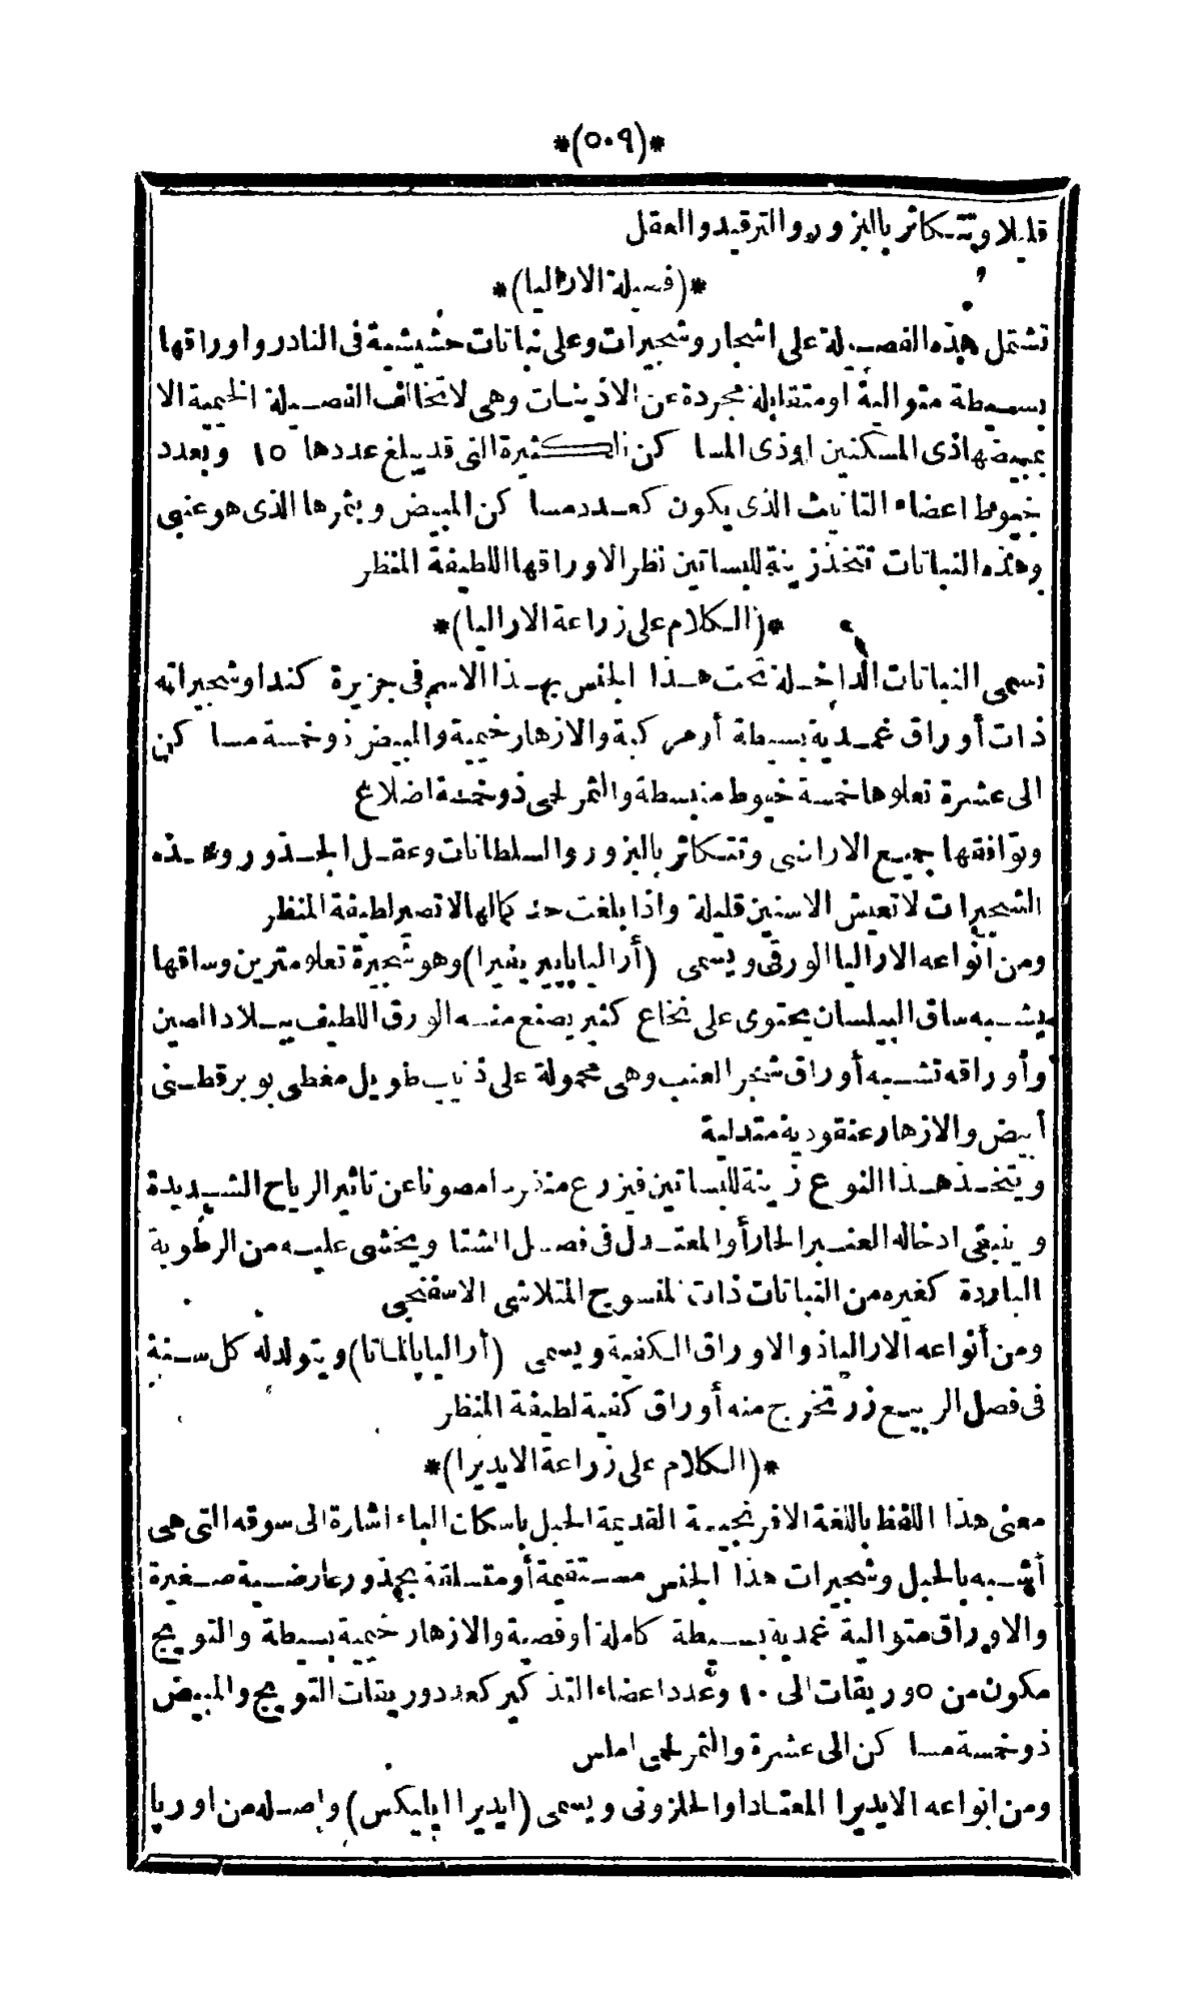 *(٥٠٩)*
قليلا وتتكاثر بالبزور والترقيد والعقل
*(فصيلة الاراليا)*
تشتمل هذه الفصيلة على اشجار وشجيرات وعلى نباتات حشيشية فى النادر واوراقها
بسيطة متوالية او متقابلة مجردة عن الاذينات وهى لا تخالف الفصيلة الخيمية الا
بمبيضها ذى المسكنين او ذى المساكن الكثيرة التى قد يبلغ عددها ١٥ وبعدد
خيوط اعضاء التانيث الذى يكون كعدد مساكن المبيض وبثمرها الذى هو عنبى
وهذه النباتات تتخذ زينة للبساتين نظرا لاوراقها اللطيفة المنظر
*(الكلام على زراعة الاراليا)*
تسمى النباتات الداخلة تحت هذا الجنس بهذا الاسم فى جزيرة كندا وشجيراته
ذات أوراق غمدية بسيطة أو مركبة والازهار خيمية والمبيض ذو خمسة مساكن
الى عشرة تعلوها خمسة خيوط منبسطة والثمر لحمى ذو خمسة اضلاع
وتوافقها جميع الاراضى وتتكاثر بالبزور والسلطانات وعقل الجذور وهذه
الشجيرات لا تعيش الا سنين قليلة واذا بلغت حد كمالها لا تصير لطيفة المنظر
ومن انواعه الاراليا الورقى ويسمى (أراليا پاپيريفيرا) وهو شجيرة تعلو مترين وساقها
يشبه ساق البيلسان يحتوى على نخاع كثير يصنع منه الورق اللطيف ببلاد الصين
وأوراقه تشبه أوراق شجر العنب وهى محمولة على ذنيب طويل مغطى بوبر قطنى
أبيض والازهار عنقودية متدلية
ويتخذ هذا النوع زينة للبساتين فيزرع منفردا مصونا عن تاثير الرياح الشديدة
وينبغى ادخاله العنبر الحار أو المعتدل فى فصل الشتا ويخشى عليه من الرطوبة
الباردة كغيره من النباتات ذات المنسوج المتلاشى الاسفنجى
ومن أنواعه الاراليا ذو الاوراق الكفية ويسمى (أراليا پالماتا) ويتولد له كل سنة
فى فصل الربيع زر تخرج منه أوراق كفية لطيفة المنظر
*(الكلام على زراعة الايديرا)*
معنى هذا اللفظ باللغة الافرنجية القديمة الحبل باسكان الباء اشارة الى سوقه التى هى
أشبه بالحبل وشجيرات هذا الجنس مستقيمة أو متسلقة بجذور عارضية صغيرة
والاوراق متوالية غمدية بسيطة كاملة أو فصية والازهار خيمية بسيطة والتويج
مكون من ٥ وريقات الى ١٠ وعدد اعضاء التذكير كعدد وريقات التويج والمبيض
ذو خمسة مساكن الى عشرة والثمر لحمى املس
ومن انواعه الايديرا المعتاد او الحلزونى ويسمى (ايديرا ايليكس) واصله من اوربا